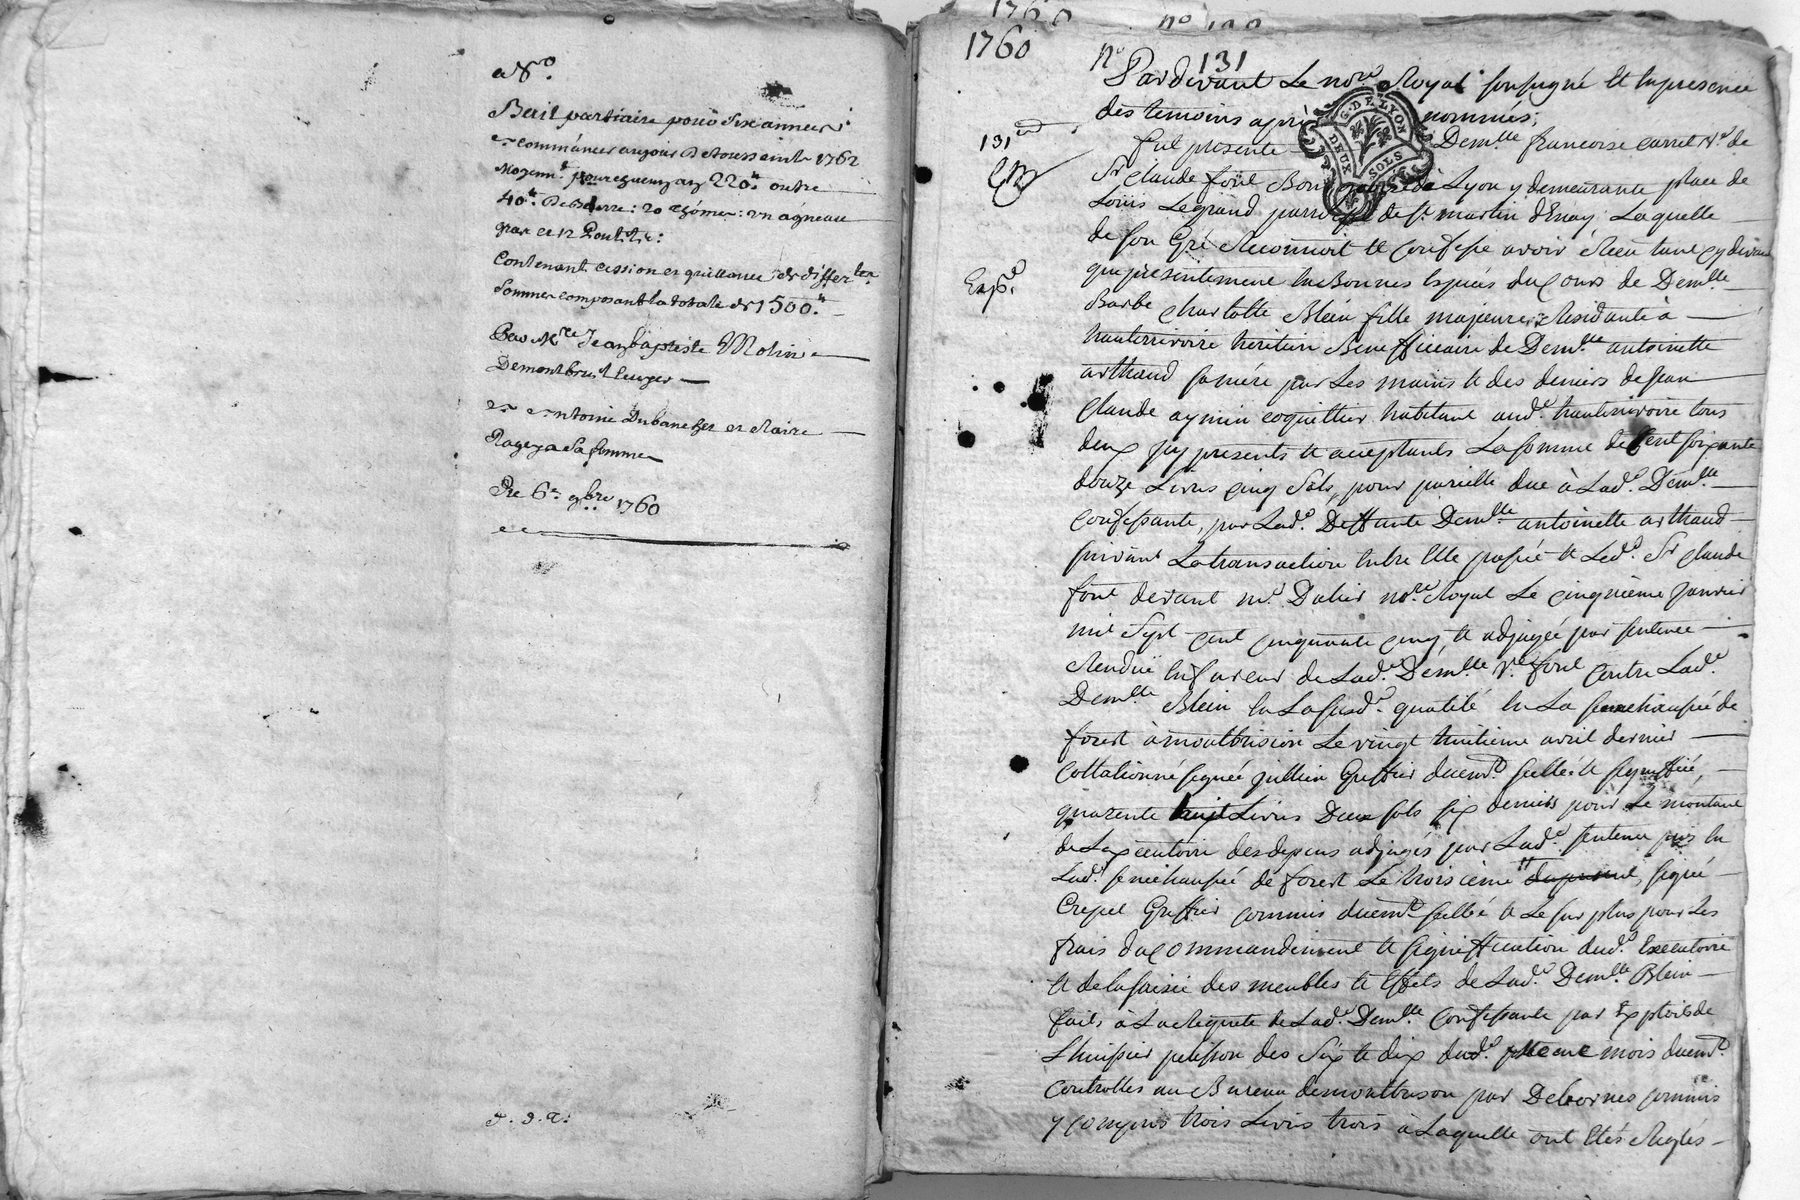 Bail partiaire pour six années
a commancer aujour De toussaint 1762
moyenn.t pour chacun an 220.tt outre
40.tt De Beurre: 20 un agneau
gras
Contenant cession et quittance de differ.tes
sommes composant la totale de 1500.tt
Par M.re Jean baptiste Molin
Demontbrun
et antoine Dubanchet et Claire
Rageys sa femme
De 6.e 9bre 1760
1760
n.o 131
Pardevant Le nore Royal soussigné et en presence
des temoins après nommés;
131
fut presente Demlle francoise carrel Ve de
Sr Claude font Bourgeois de Lyon y demeurante place de
Louis Legrand parroisse de St martin d'Enay Laquelle
de son Gré Reconnoit et Confesse avoir Reçu tant cy devant
G. DE LYON
DEUX SOLS
Exp.é
que presentement en Bonnes Espéces du Cours de Demlle
Barbe Charlotte Blein fille majeure Residante à
hauterivoire heritiere Beneficiaire de Demlle antoinette
arthaud sa mére par Les mains et des deniers de Jean
Claude aymin coquettier habitant aud.t hauterivoire tous
deux icy presents et acceptants La somme de Cent soixante
douze Livres cinq sols, pour pareille due à Lad.e Demlle
Confessante, par Lad.e Deffunte Demlle antoinette arthaud
suivant La transaction entre Elle passée et Led.t Sr Claude
font devant me Dalier nore Royal Le cinquieme Janvier
mil Sept cent cinquante cinq, et adjugée par sentence
Rendue en faveur de Lad.e Demlle Ve font Contre Lad.e
Demlle Blein en La susd.e qualité en La senechaussée de
forest à montbrison Le vingt huitieme avril dernier
Collationné signée jullien Greffier duemt scellée et signiffiée,
quarente huit Livres Deux sols six deniers pour Le montant
de L'executoire des depens adjugés par Lad.e sentence pris en
Lad.e senechaussée de forest Le troisieme signé
Crepet Greffier commis duemt scellé et Le surplus pour Les
frais du Commandement et signiffication dud.t Executoire
et de la saisie des meubles et Effets de Lad.e Demlle Blein
faits à La Requete de Lad.e Demlle Confessante par Exploits de
L'huissier pelisson des Six et dix dud.t mois duemt
Controllés au Bureau de montbrison par Debornes commis
y compris trois Livres trois à Laquelle ont Etés Reglés